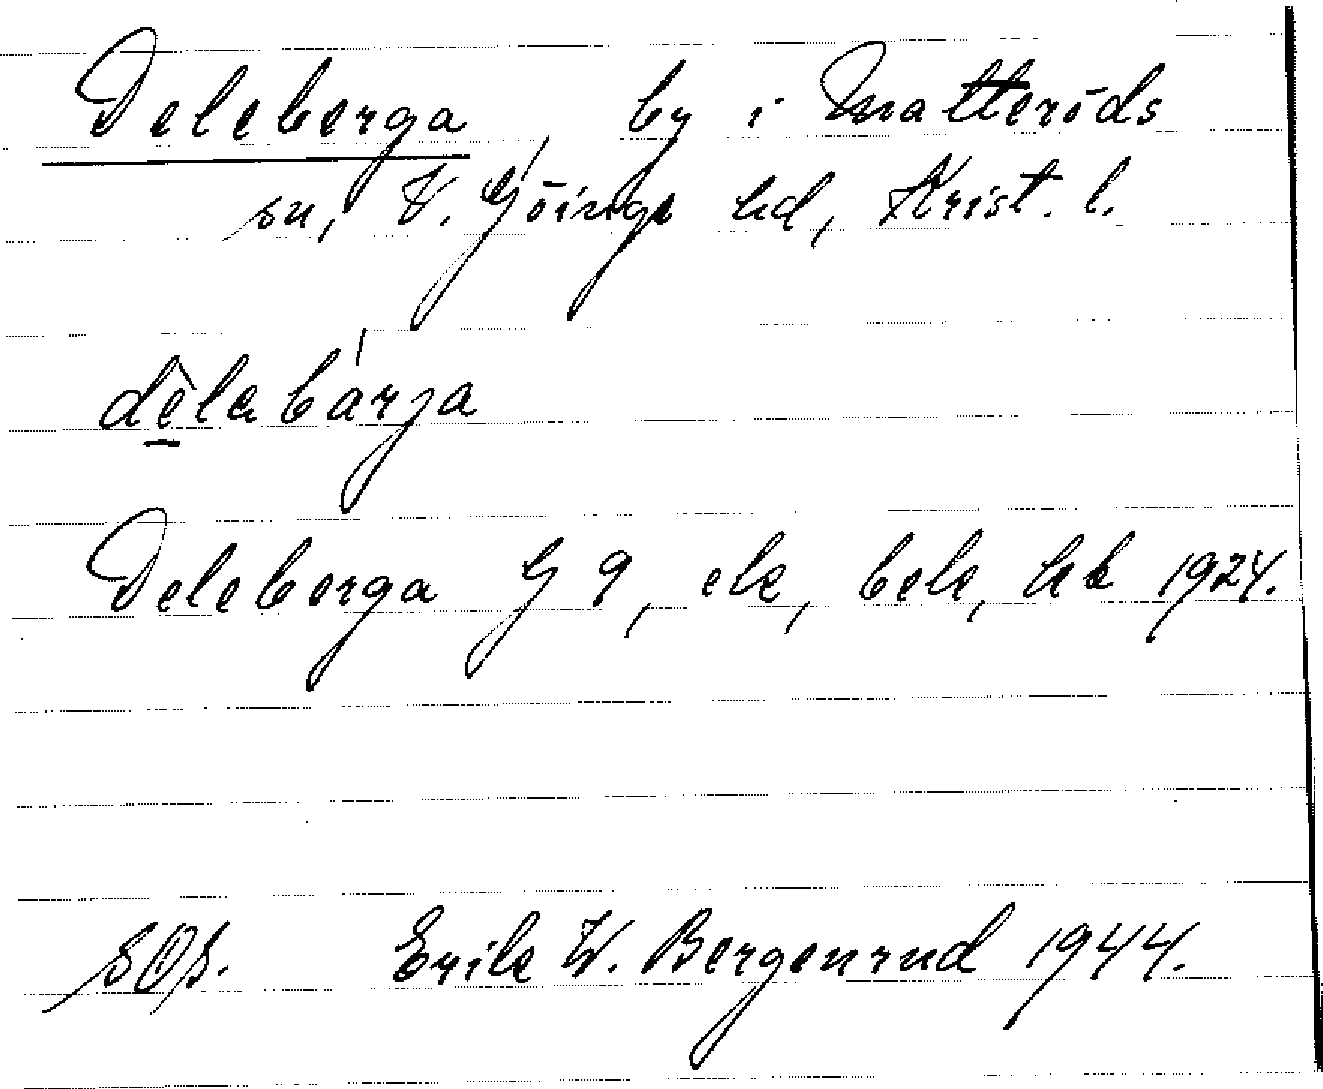 Deleberga, by i Matteröds
sn, V. Göinge hd, Krist. l.
dèlabárja
Deleberga G 9, ek, bek, hk 1924.
SOS. Erik W. Bergenrud 1944.